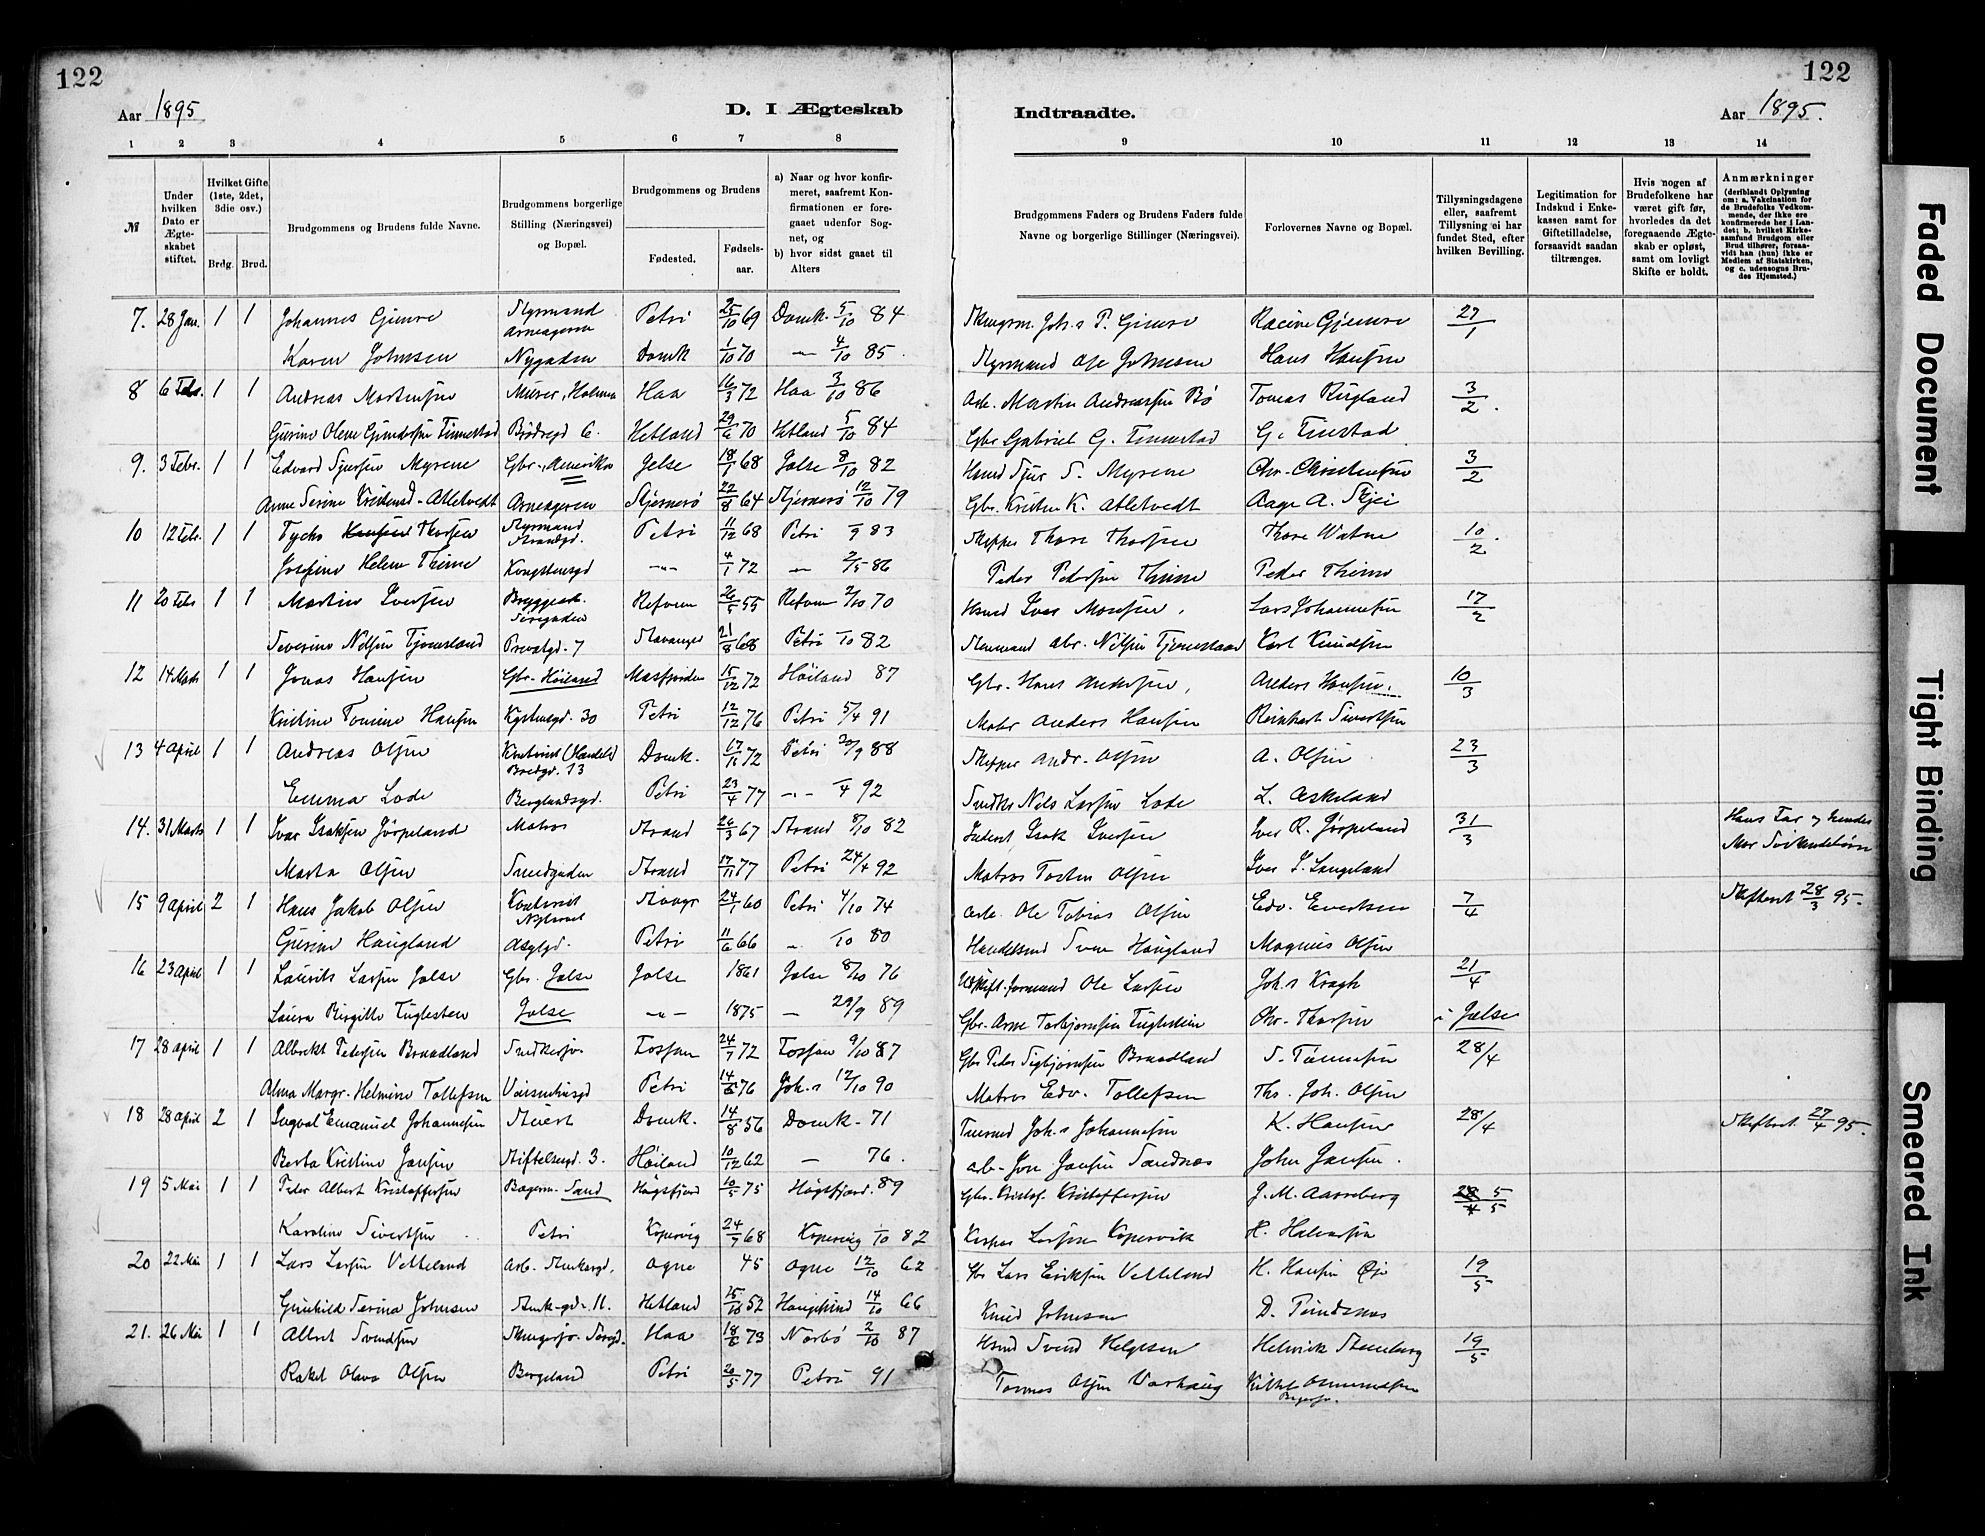 122
122
Aar 1895
D. I Ægteskab
Indtraadte.
Aar 1895.
1 2 3 4 5 6 7 8 9 10 11 12 13 14
№
Under hvilken Dato er Ægteskabet stiftet.
Hvilket Gifte (1ste, 2det, 3die osv.)
Brdg. Brud.
Brudgommens og Brudens fulde Navne.
Brudgommens borgerlige Stilling (Næringsvei) og Bopæl.
Brudgommens og Brudens
Fødested.
Fødselsaar.
a) Naar og hvor konfirmeret, saafremt Konfirmationen er foregaaet udenfor Sognet, og
b) hvor sidst gaaet til Alters
Brudgommens Faders og Brudens Faders fulde Navne og borgerlige Stillinger (Næringsvei).
Forlovernes Navne og Bopæl.
Tillysningsdagene eller, saafremt Tillysning ei har fundet Sted, efter hvilken Bevilling.
Legitimation for Indskud i Enkekassen samt for Giftetilladelse, forsaavidt saadan tiltrænges.
Hvis nogen af Brudefolkene har været gift før, hvorledes da det foregaaende Ægteskab er opløst, samt om lovligt Skifte er holdt.
Anmærkninger
(deriblandt Oplysning om: a. Vakcination for de Brudefolks Vedkommende, der ikke ere konfirmerede her i Landet; b. hvilket Kirkesamfund Brudgom eller Brud tilhører, forsaavidt han (hun) ikke er Medlem af Statskirken, og c. udensogns Brudes Hjemsted.)
7. 28 Jan. 1 1 Johannes Gjemre Styrmand Petri 25/10 69 Domk. 5/10 84 Joh.s P. Gjemre Racine Gjemre 27/1
Karen Johnsen Nygaden Domk 1/10 70 -"- 4/10 85. Styrmand Ole Johnsen Hans Hansen
8 6 Febr. 1 1 Andreas Martinsen Murer, Holmen Haa 16/3 72 Haa 3/10 86 Arb. Martin Andreassen Bø Tomas Rugland 3/2.
Gurine Olene Tinnestad Brødregd 6. Hetland 29/6 70 Hetland 5/10 84 Gbr Gabriel G. Tinnestad G. Tinstad
9. 3 Febr. 1 1 Edvard Sjursen Myrene Gbr., Amerika Jelse 18/1 68 Jalse 8/10 82 Hsmd Sjur S. Myrene Chr. Christensen 3/2
Anne Serine Atletvedt Arneageren Stjernerø 22/8 64 Stjernerø 12/10 79 Gbr. Kristen K. Atletvedt Aage A. Skjei
10 12 Febr. 1 1 Tycho Hansen Thorsen Styrmand Strandgd. Petri 11/12 68 Petri /9 83 Skipper Thore Thorsen Thore Watne 10/2.
Josefine Helene Thime Kongstensgd -"- 4/1 72 - 2/5 86 Peder Pedersen Thime Peder Thime
11 20 Febr 1 1 Martin Iversen 26/5 55 2/10 70 Hsmd Iver Monsen, Lars Johannesen 17/2
Severine Nilsen Tjemsland Provstgd. 7 Stavanger 21/8 68 Petri /10 82 Karl Knudsen
12 14 Marts 1 1 Jonas Hansen Gbr. Høiland Masfjorden 15/12 72 Høiland 87 Gbr. Hans Andersen, Anders Hansen, 10/3
Kristine Tomine Hansen 30 Petri 12/12 76 Petri 5/4 91 Matr Anders Hansen Reinhart Sivertsen
13 4 April 1 1 Andreas Olsen Kontorist (Handels) Bredgd. 13 Domk. 17/11 72 Petri 20/9 88 Skipper Andr. Olsen A. Olsen 23/3
Emma Lode Berglandsgd. Petri 23/4 77 -"- /4 92 Snedker Nels Larsen Lode L. Askeland
14. 31 Marts 1 1 Ivar Isaksen Jørpeland Matros Strand 26/3 67 Strand 8/10 82 Inderst Isak Iversen Iver R. Jørpeland 31/3 Hans Far og hendes Mor Søskendebørn
Marta Olsen Smedgaden Strand 17/11 77 Petri 24/4 92 Matros Torten Olsen Iver I. Langeland
15 9 April 2 1 Hans Jakob Olsen Kontorist Stavgr 24/1 60 Petri 4/10 74 Arb. Ole Tobias Olsen Edv. Evertsen 7/4 Skifteat 28/3 95-
Gurine Haugland Petri 11/6 66 " /10 80 Handelsmd Sven Haugland Magnus Olsen
16 23 April 1 1 Laurits Larsen Jalse Gbr. Jalse Jalse 1861 Jalse 8/10 76 Ole Larsen Joh.s Kragh 21/4
Laura Birgitte Tuglesten Jalse -"- 1875 - 29/9 89 Gbr. Arne Torbjørnsen Chr. Thorsen i Jælse
17 28 April 1 1 Albrekt Petersen Braadland Snedkersv. Fossan 24/7 72 Fossan 9/10 87 Gbr Peder Sigbjørnsen Braadland S. Tønnesen 28/4
Alma Margr. Helmine Tollefsen Vaisenhusgd Petri 14/6 76 Joh.s 12/10 90 Matros Edv. Tollefsen Ths. Joh. Olsen
18 28 April 2 1 Ingval Emanuel Johannesen Stuert Domk. 14/8 56 Domk. 71 Joh.s Johannesen K. Hansen 28/4 Skifteat. 27/4 95-
Berta Kristine Jansen Stiftelsesgd. 3. Høiland 10/12 62 - 76. Arb. Jon Jansen Sandnæs John Jansen.
19 5 Mai 1 1 Peder Albert Kristoffersen Bagerm. Sand Høgsfjord 10/5 75 Høgsfjord. 89 Gbr. Kristof. Kristoffersen J. M. Aarreberg 28/4 5/5
Karoline Sivertsen Petri Kopervig 24/7 68 Kopervig /10 82 Kasper Larsen Kopervik H. Halvorsen
20 22 Mai 1 1 Lars Larsen Vetteland Arb. Ogne 45 Ogne 12/10 62 Gbr Lars Eriksen Vetteland H. Hansen Øje 19/5
Gunhild Serina Johnsen 11. Hetland 15/10 52 Haugesund 14/10 66 Knud Johnsen D. Tendenæs
21. 26 Mai 1 1 Albert Svendsen Haa 18/6 73 Nærbø 2/10 87 Hsmd Svend Helgesen Helmik Steneberg 19/5
Rakel Olava Olsen Bergeland Petri 26/5 77 Petri 91 Tomas Olsen Varhaug
Faded Document
Tight Binding
Smeared Ink